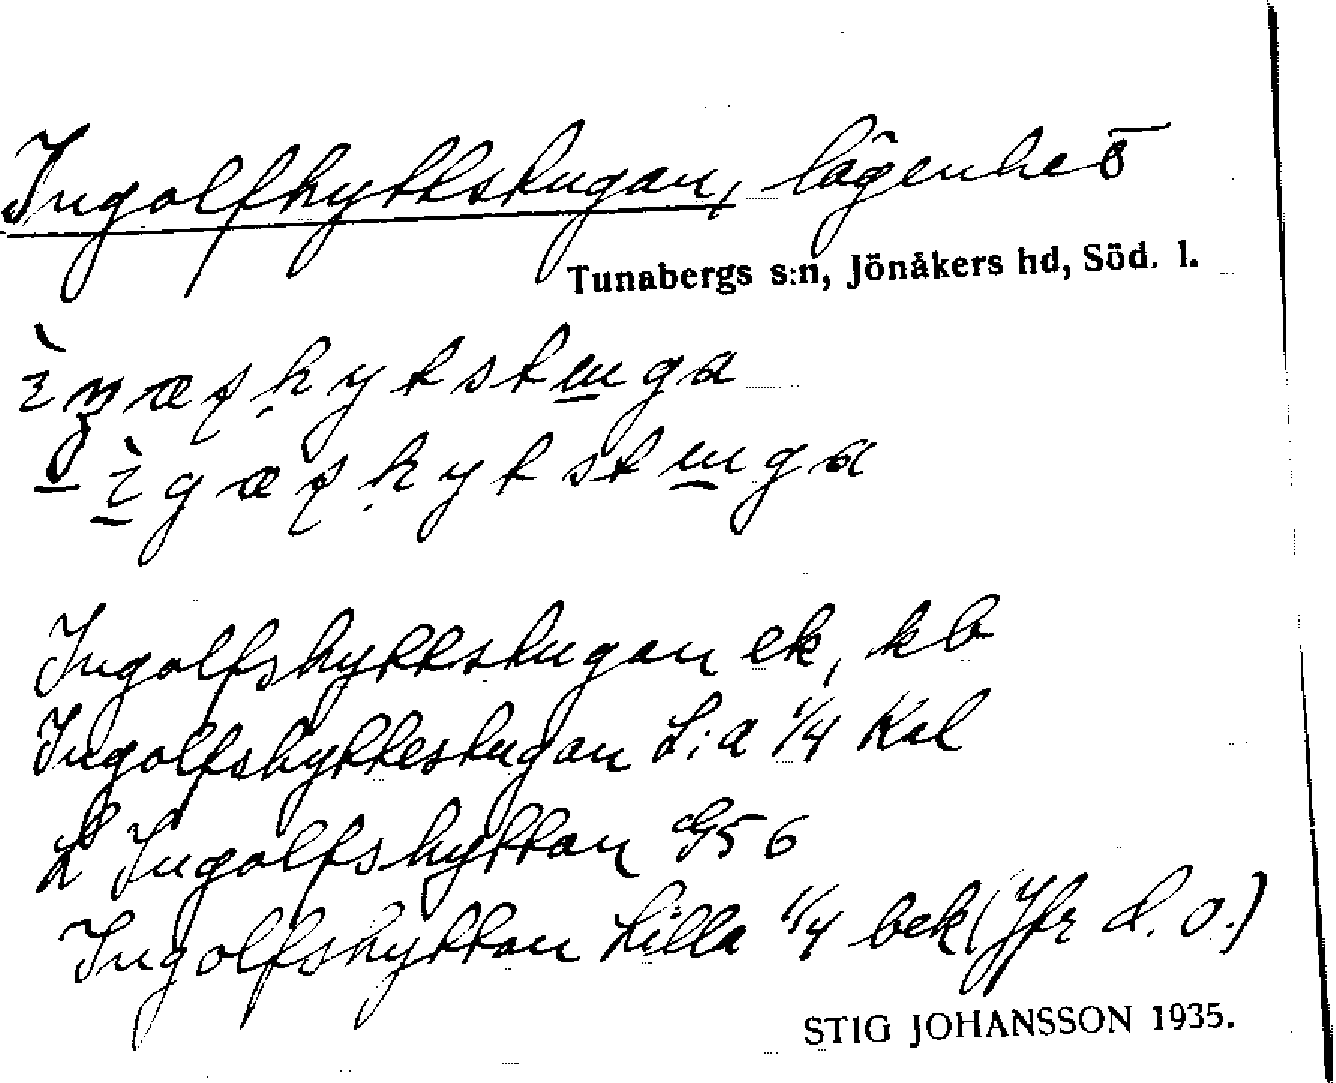 Ingolfhyttstugan, lägenhet
Tunabergs s:n, Jönåkers hd, Söd. l.
Ingolfshyttstugan ek, kb
Ingolfshyttestugan L:a 1/4 Kal
L Ingolfshyttan G56
Ingolfshyttan Lilla 1/4 bek (Jfr d. o.)
STIG JOHANSSON 1935.